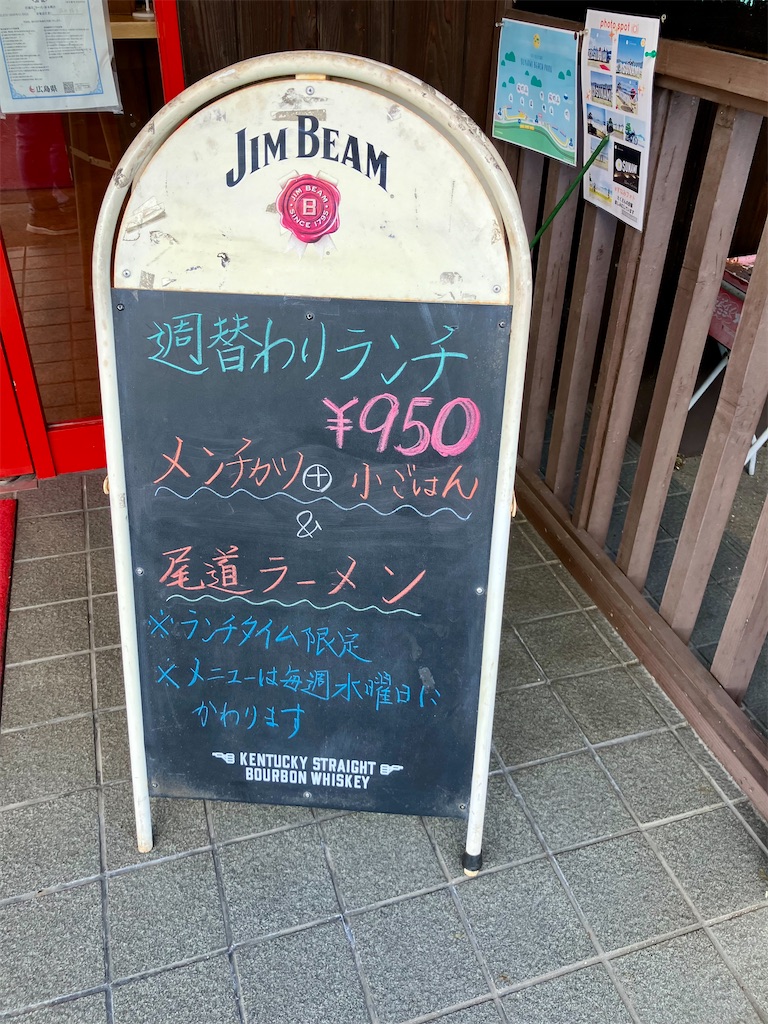 広島県
photo spot
JIM BEAM
JIM BEAM
B
SINCE 1795
週替わりランチ
¥950
メンチカツ⊕小ごはん
&
尾道ラーメン
※ランチタイム限定
※メニューは毎週水曜日に
かわります
KENTUCKY STRAIGHT
BOURBON WHISKEY